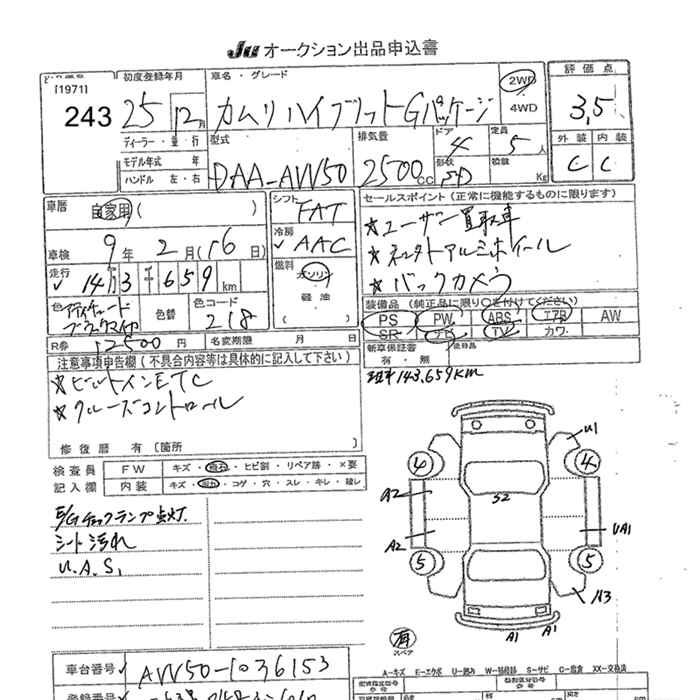 Ju オークション出品申込書
[1971]
243
初度登録年月
25 12月
車名・グレード
カムリ ハイブリット Gパッケージ
2WD
4WD
評価点
3.5
外装 内装
C C
ディーラー・並・行
モデル年式 年
ハンドル 左・右
型式
DAA-AVV50
排気量
2500cc
ドア
4
形状
SD
定員
5人
積載
Kg
車歴
自家用 ( )
車検 9年 2月 (16日)
走行
14万3千659km
色
色替
色コード
218
R券 12500円
名変期限 月 日
シフト
FAT
冷房
AAC
燃料
ガソリン
軽油
( )
セールスポイント (正常に機能するものに限ります)
★ユーザー買取車
★ネッタトアルミホイール
★バックカメラ
装備品 (純正品に限り○を付けてください)
PS PW ABS エアB AW
SR ナビ TV カワ
新車保証書
有・無
注意事項申告欄 (不具合内容等は具体的に記入して下さい)
★ビルトインETC
★クルーズコントロール
修復歴 有 〔箇所 〕
143,659km
検査員
記入欄
FW キズ・飛石・ヒビ割・リペア跡・×要
内装 キズ・汚れ・コゲ・穴・スレ・キレ・破レ
E/Gチェックランプ点灯.
シート汚れ
U.A.S,
U1
4 4
A2 S2
A2 UA1
5 5
U3
有
スペア
A1 A1
A…キズ E…エクボ U…凹み W…補修跡 S…サビ C…腐食 XX…交換済
車台番号 AVV50-1036153
登録番号